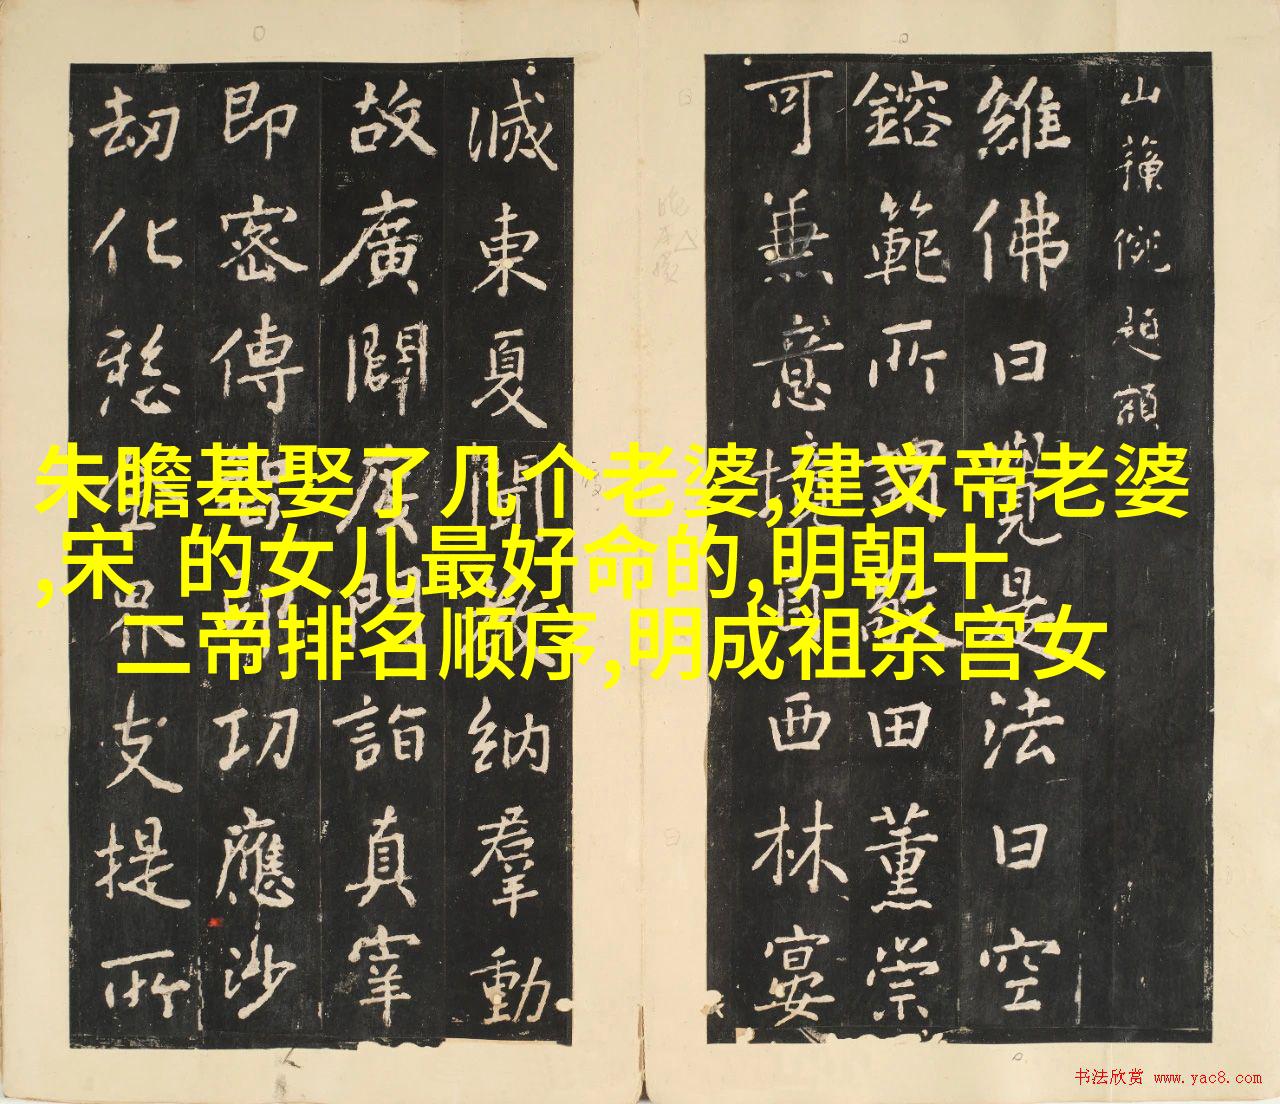 山蘇
題額
維佛曰覺是法曰空
鎔範所
田薰崇
可兼意境因西林宴
滅東夏聞
納羣動
故廣闢度門詣真宰
即密傳
功應沙
劫化愁
支提所
朱瞻基娶了几个老婆,建文帝老婆
,宋 的女儿最好命的,明朝十
二帝排名顺序,明成祖杀宫女
书法欣赏 www.yac8.com